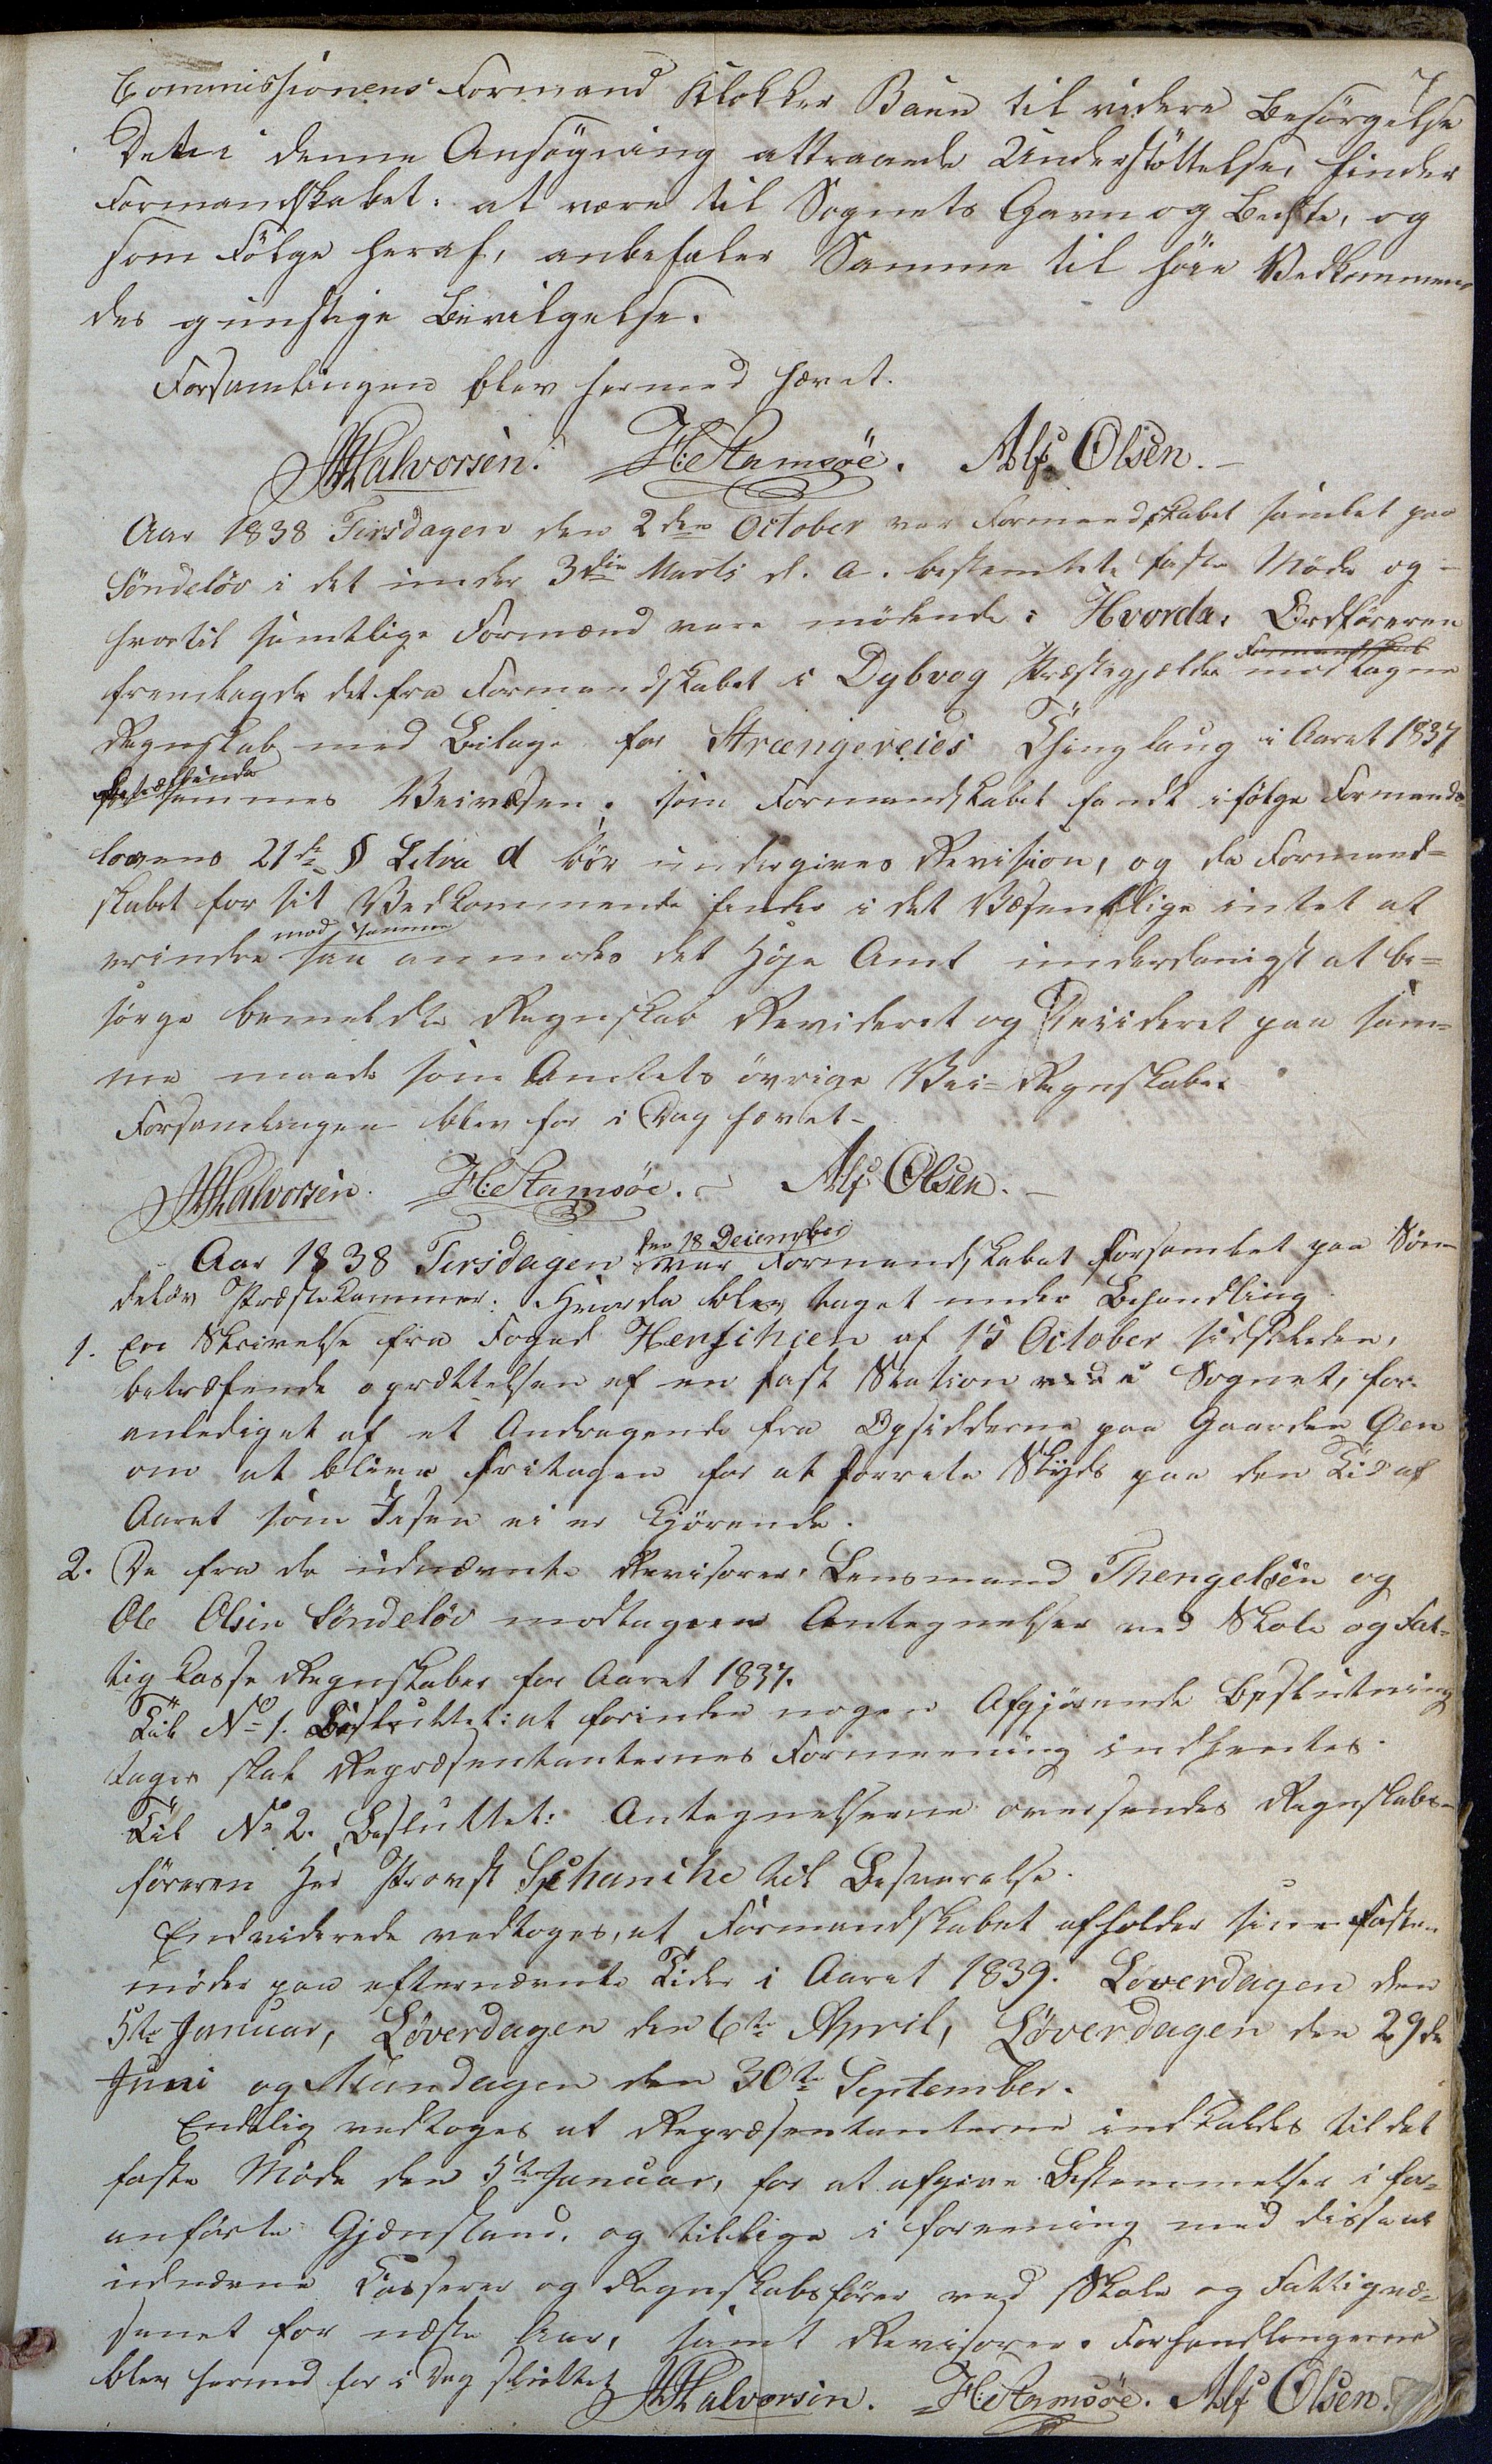 7
Commissionens Formand Klokker Baun til videre Besørgelse
Den i denne Ansøgning attraaede Understøttelse, finder
Formandskabet: at være til Sognets Gavn og Bedste, og
som Følge heraf, anbefaler Samme til høie Vedkommen-
des gunstige Bevilgelse.
Forsamlingen blev hermed hævet.
JHalvorsen. H: Stamsøe. Alf Olsen.
Aar 1838 Tirsdagen den 2den October var Formandskabet samlet paa
Søndeløv i det under 3die Marts d. A. bestemte faste Møde og
hvortil samtlige Formænd vare mødende: Hvorda, Ordføreren
fremlagde det fra Formandskabet i Dybvog Præstegjælds modtagne
Regnskab med Bilage for Strængereies Thinglaug i Aaret 1837
betræffende sammes Veivæsen. som Formandskabet fandt ifølge Formands-
lovens 21de § Litra d bør undergives Revision, og da Formand-
skabet for sit Vedkommende finder i det Væsentlige intet at
erindre mod samme saa anmodes det Høje Amt underdanigst at be-
sørge bemeldte Regnskab Revideret og Decideret paa sam-
me maade som Amtets øvrige Vei-Regnskaber
Forsamlingen blev for i Dag hævet-
JHalvorsen. H: Stamsøe. Alf Olsen.
Aar 1838 Tirsdagen den 18 December var Formandskabet forsamlet paa Søn-
deløv Præstekammer: Hvorda blev taget under Behandling
1. En Skrivelse fra Foged Henschien af 15 October sidstleden,
betræffende oprættelsen af en fast Station ved i Sognet, for-
anlediget af et Andragende fra Opsidderne paa Gaarden Øen
om at blive fritagen for at forrete Skyds paa den Tid af
Aaret som Isen ei er kjørende.
2. De fra de udnævnte Revisorer: Lensmand Thengelsen og
Ole Olsen Søndeløv modtagne Antegnelser ved Skole og Fat-
tig Casse Regnskaber for Aaret 1837.
Til No 1. Besluttet: at forinden nogen Afgjørende Beslutning
tages skal Repræsentanternes Formeening indhentes.
Til No 2. Besluttet: Antegnelserne oversendes Regnskabs-
føreren Hr Provst Schanche til Besvarelse.
Endviderede vedtoges, at Formandskabet afholder sine Faste-
møder paa efternævnte Tider i Aaret 1839. Løverdagen den
5te Januar, Løverdagen den 6te April, Løverdagen den 29de
Juni og Mandagen den 30te September.
Endelig vedtoges at Repræsentanterne indkaldes til det
faste Møde den 5te Januar, for at afgive Bestemmelser i for-
anførte Gjenstand. og tillige i forening med disse at
udnævne Casserer og Regnskabsfører ved Skole og Fattigvæ-
senet for næste Aar, samt Revisorer. Forhandlingerne
blev hermed for i Dag sluttet JHalvorsen. H: Stamsøe. Alf Olsen.